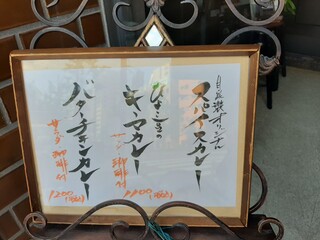 自家製オリジナル
スパイスカレー
ひよこ豆の
キーマカレー
サラダ
珈琲付
1200(税込)
バターチキンカレー
サラダ 珈琲付
1200(税込)